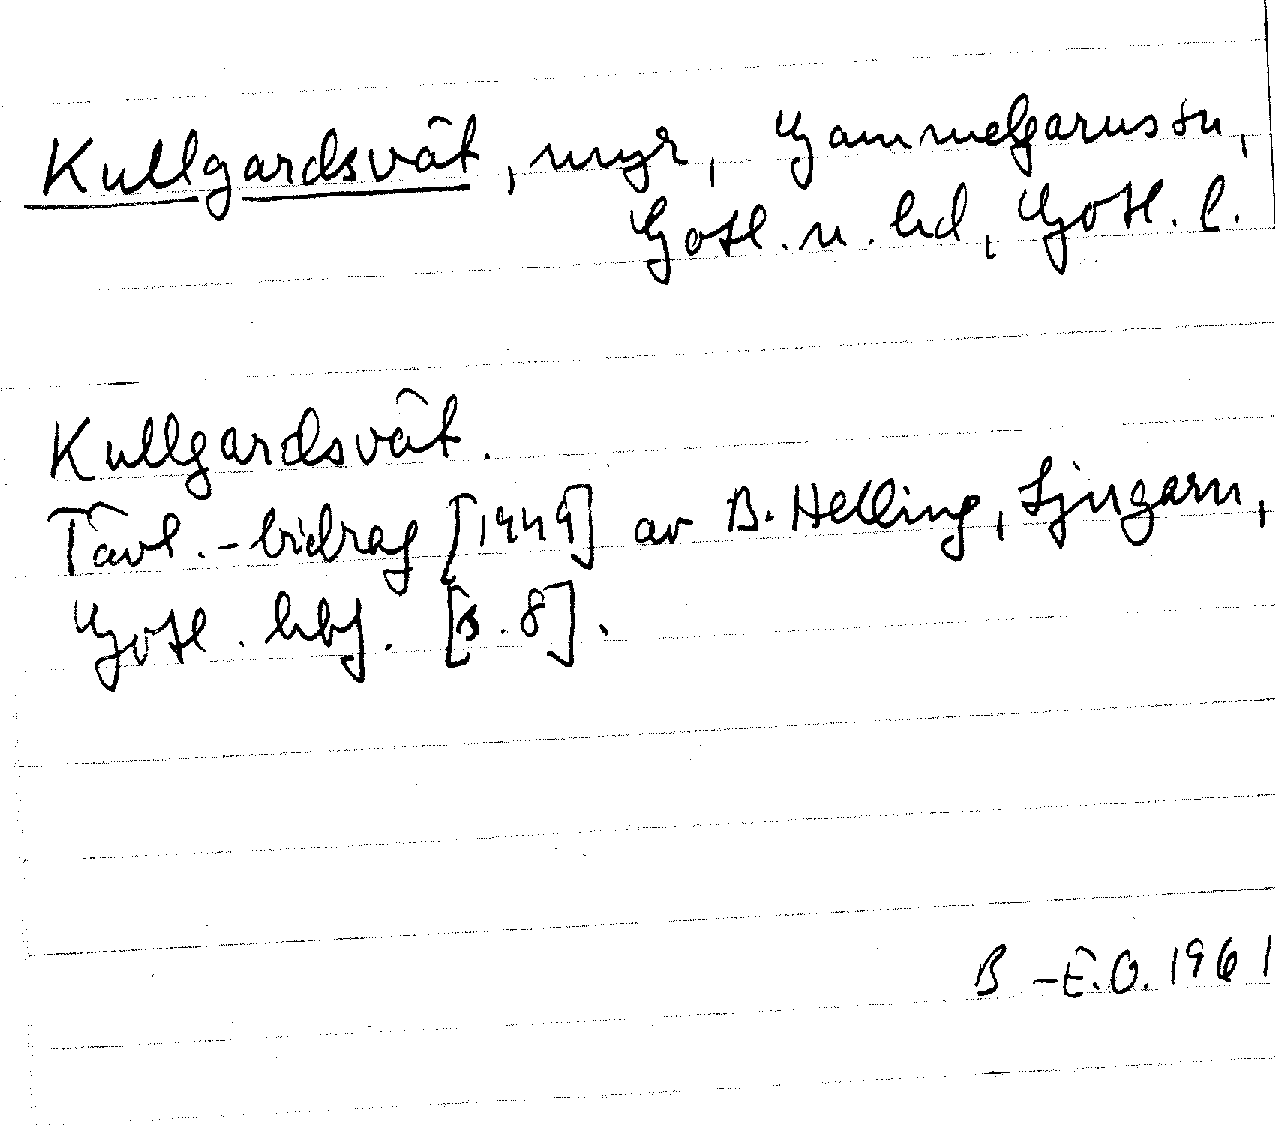 Kullgardsvät, myr, Gammelgarns sn,
Gotl. n. hd, Gotl. l.
Kullgardsvät.
Tävl.-bidrag [1949] av B. Helling, Ljugarn,
Gotl. hbf. [s. 8].
B-E.O. 1961